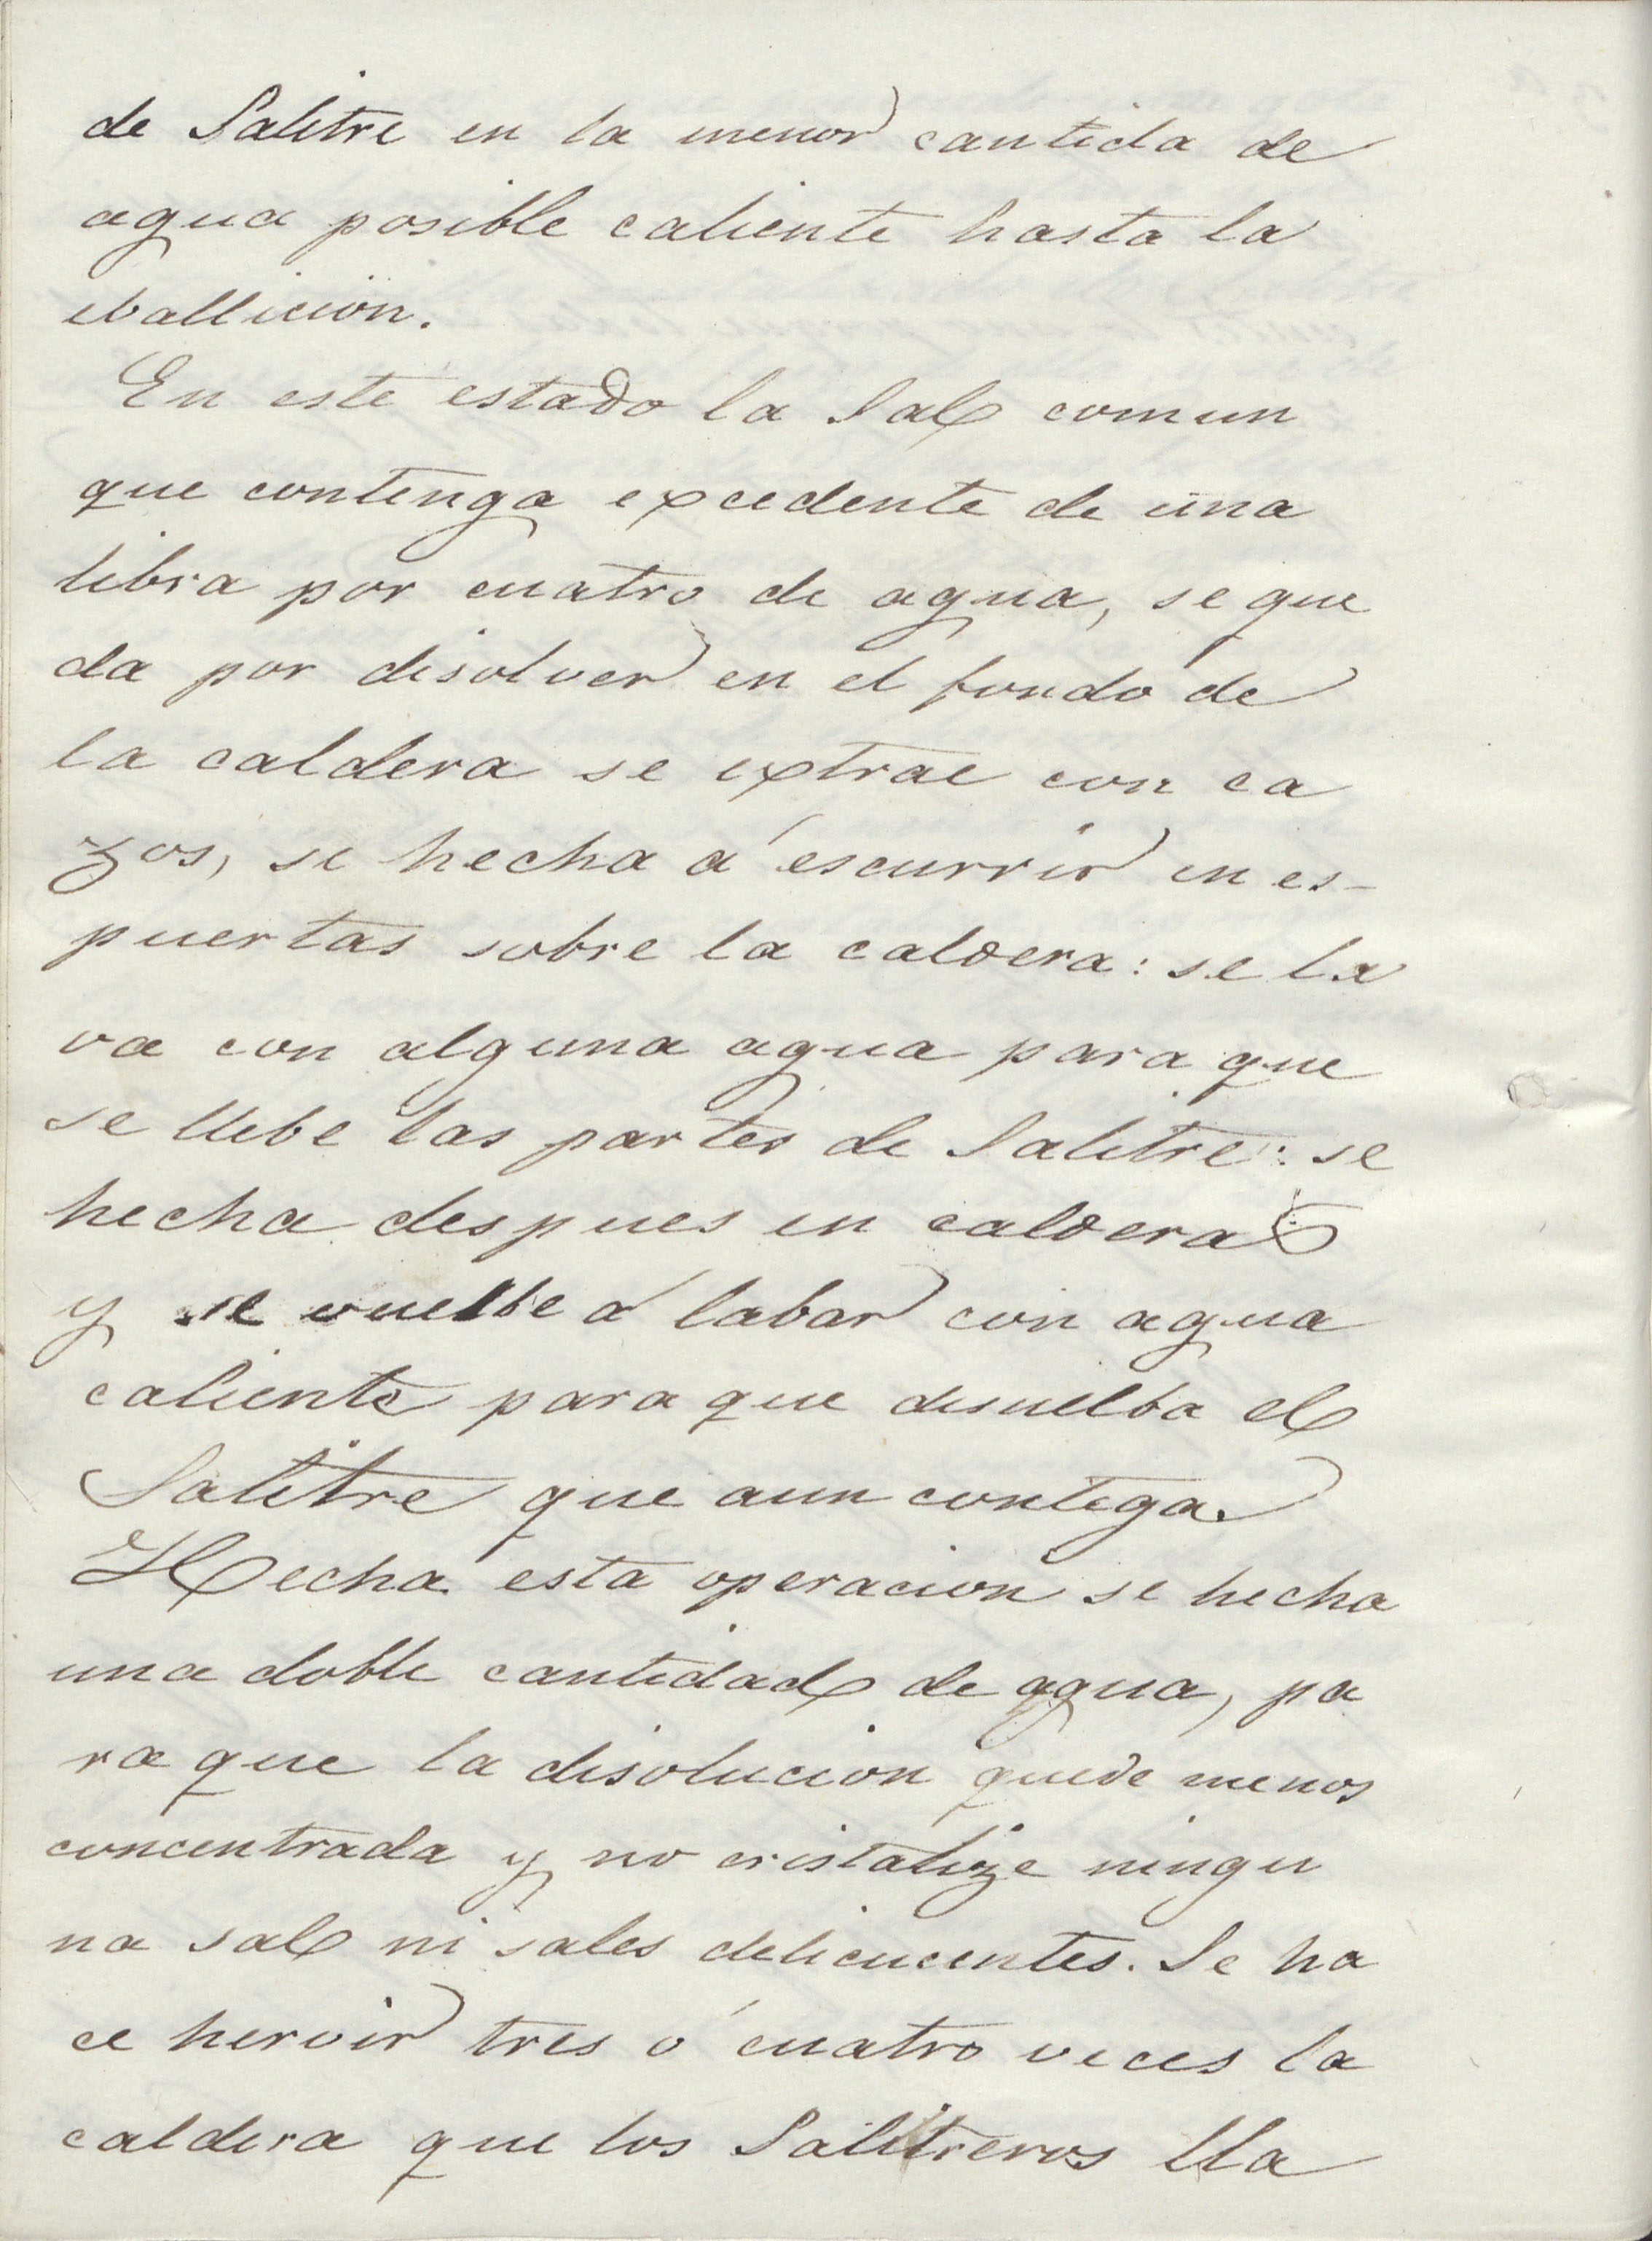 de Salitre en la menor cantida de
agua posible caliente hasta la
eballicion.
En este estado la Sal comun
que contenga excedente de una
libra por cuatro de agua, se que
da por disolver en el fondo de
la caldera se extrae con ca
zos, se hecha á escurrir en es-
puertas sobre la caldera: se la
va con alguna agua para que
se llebe las partes de Salitre: se
hecha despues en calderas
y se vuelbe á labar con agua
caliente para que disuelba el
Salitre que aun contega.
Hecha esta operacion se hecha
una doble cantidad de agua, pa
ra que la disolucion quede menos
concentrada y no cristalize ningu
na sal ni sales delicucentes. Se ha
ce hervir tres ó cuatro veces la
caldera que los Salitreros lla